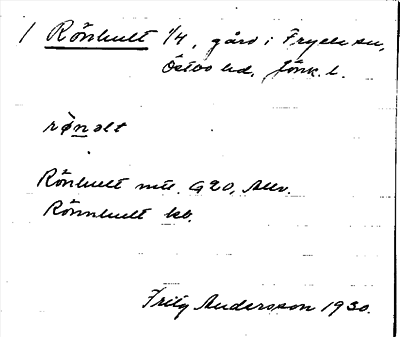 1 Rönhult 1/4, gård i Fryele sn,
Östbo hd. Jönk. l.
rø̀nəlt
Rönhult mtl. G20, Allv.
Rönnhult kb.
Fritz Andersson 1930.